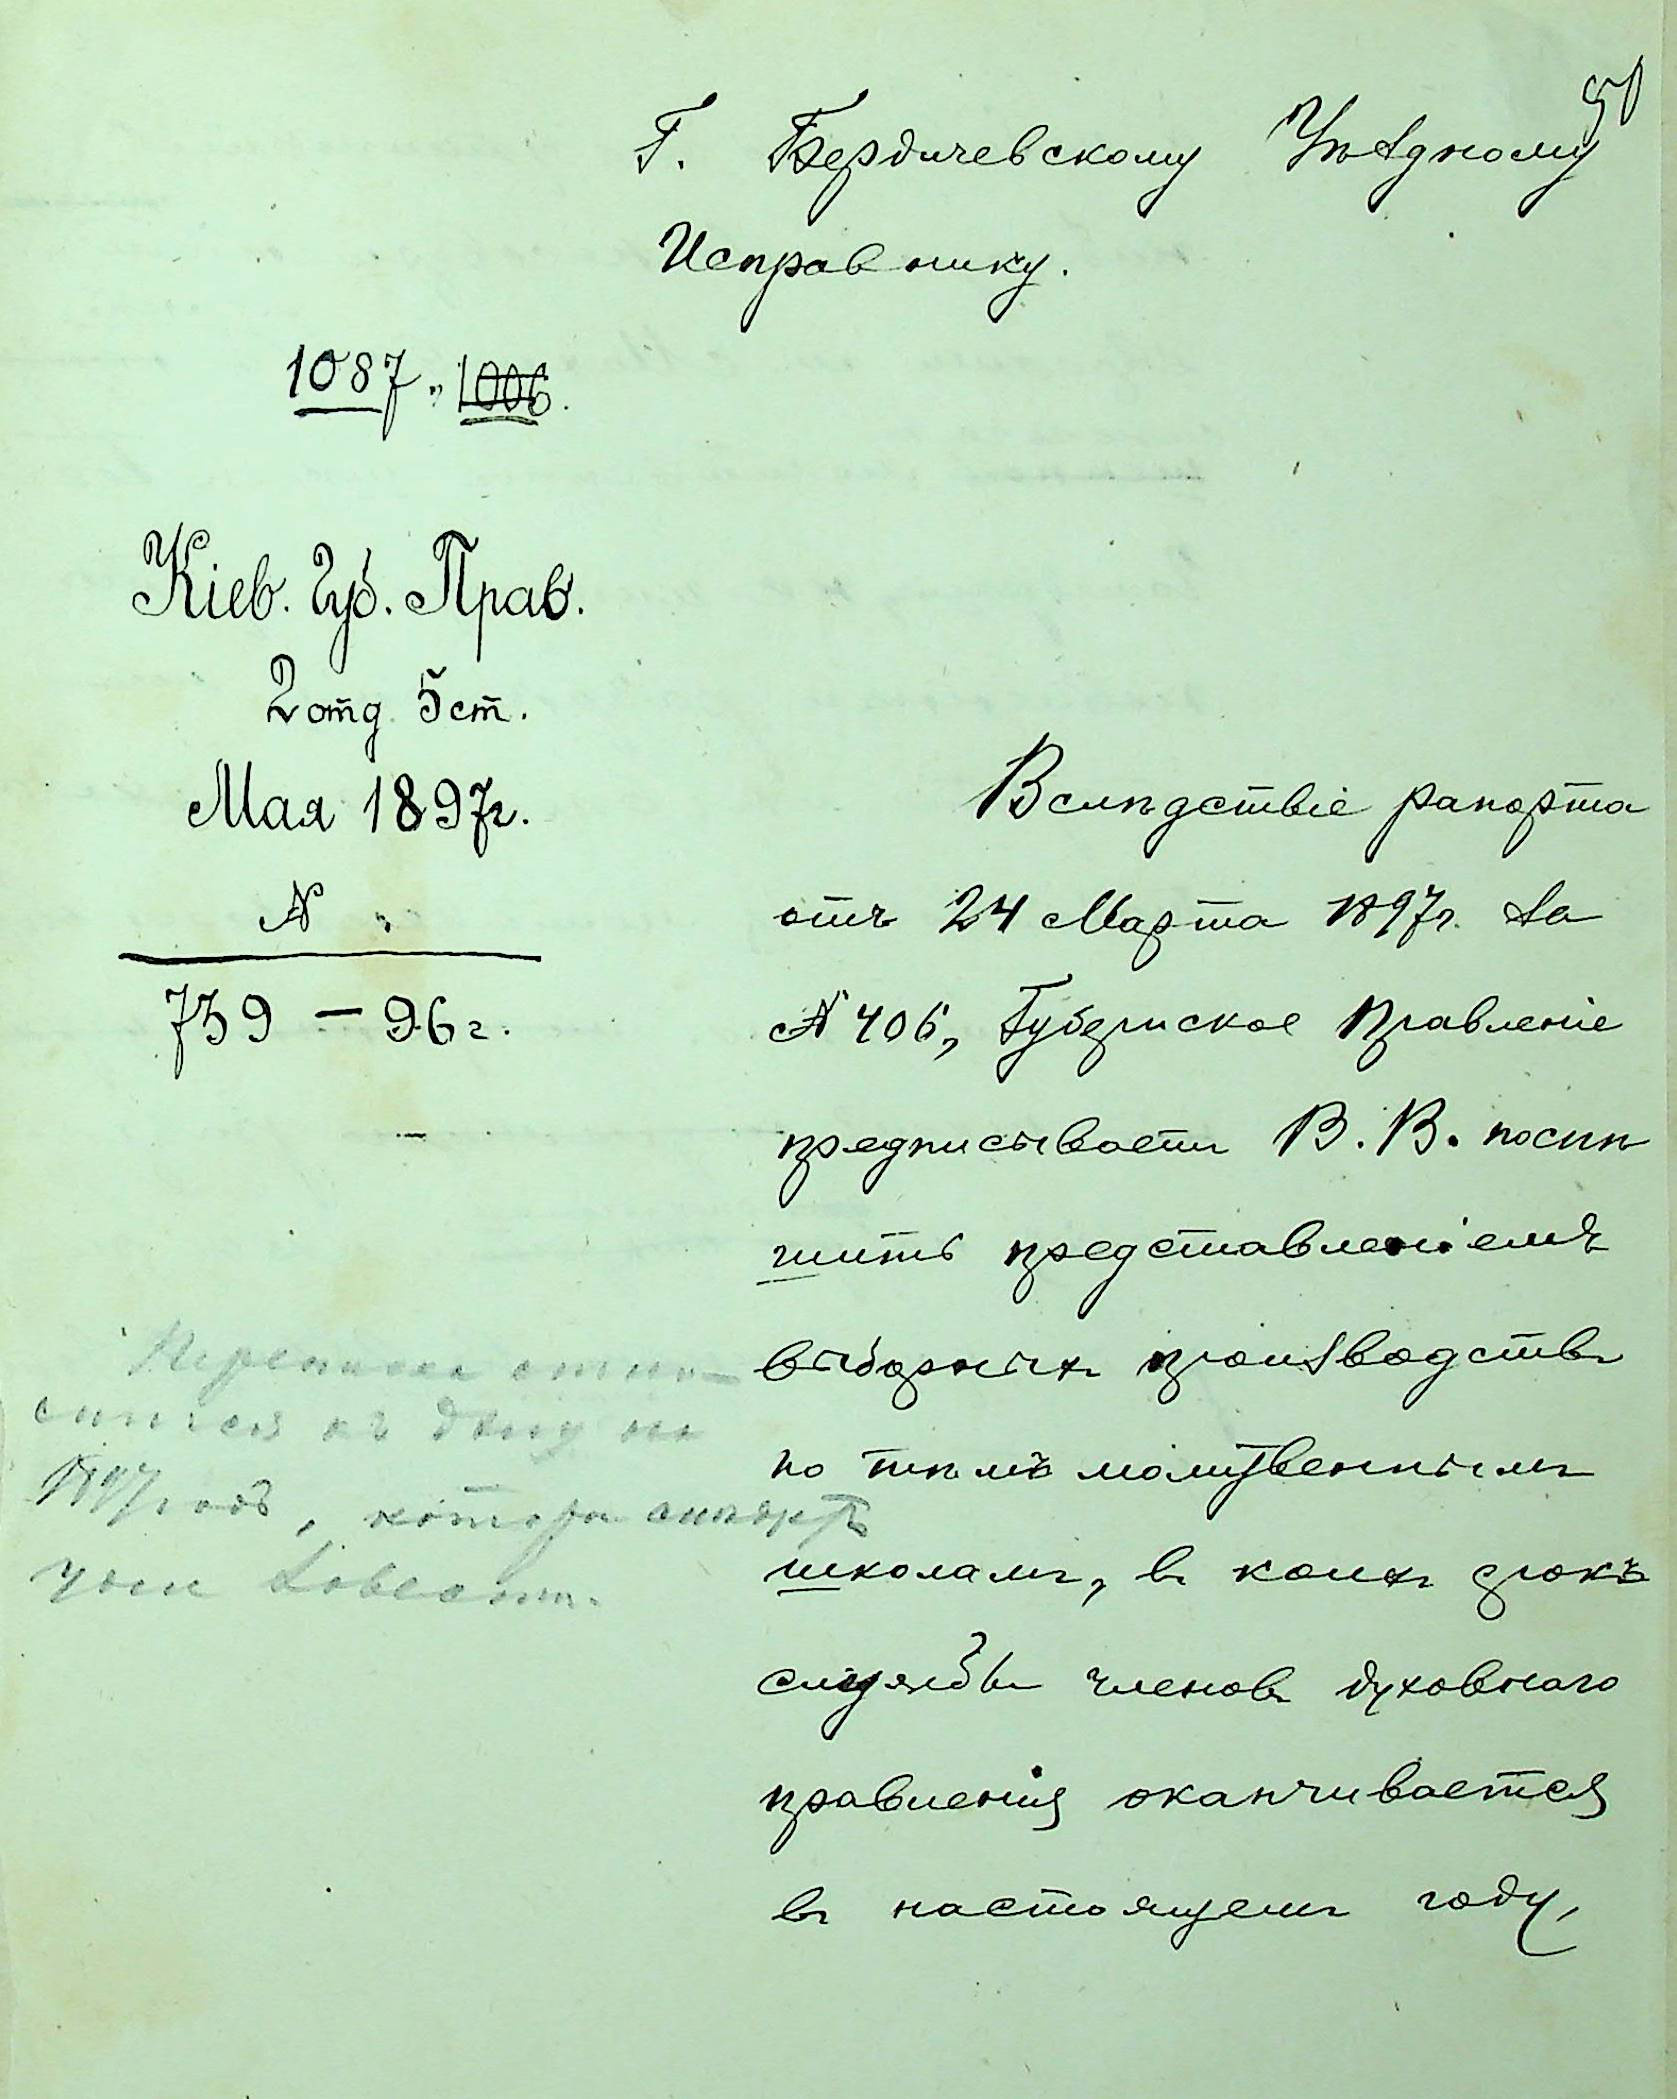 50
Г. Бердичевскому Уѣздному
Исправнику.
1087 " 1006.
Кіев. Губ. Прав.
2 отд. 5 ст.
Мая 1897г.
№ "
739 — 96 г.
Вслѣдствіе рапорта
отъ 24 Марта 1897г. за
№ 406, Губернское Правленіе
предписываетъ В. В. поспѣ
шить представленіемъ
выборныхъ производствъ
по тѣмъ молитвеннымъ
школамъ, въ коихъ срокъ
службы членовъ духовнаго
правленія оканчивается
въ настоящемъ году,
Переписка отно-
сится къ дѣлу на
1897 годъ,